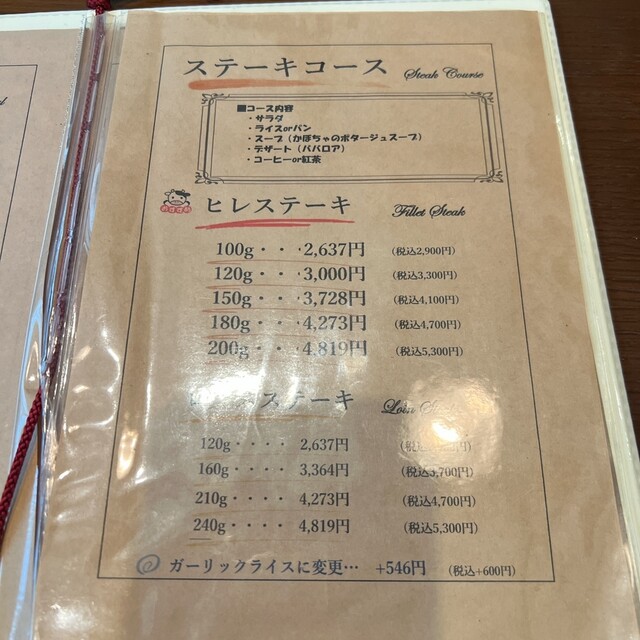 ステーキコース Steak Course
■コース内容
・サラダ
・ライスorパン
・スープ（かぼちゃのポタージュスープ）
・デザート（ババロア）
・コーヒーor紅茶
おすすめ ヒレステーキ Fillet Steak
100g・・・2,637円 （税込2,900円）
120g・・・3,000円 （税込3,300円）
150g・・・3,728円 （税込4,100円）
180g・・・4,273円 （税込4,700円）
200g・・・4,819円 （税込5,300円）
ステーキ Loin
120g・・・・ 2,637円 （税込
160g・・・・ 3,364円 （税込3,700円）
210g・・・・ 4,273円 （税込4,700円）
240g・・・・ 4,819円 （税込5,300円）
ガーリックライスに変更… +546円 （税込+600円）